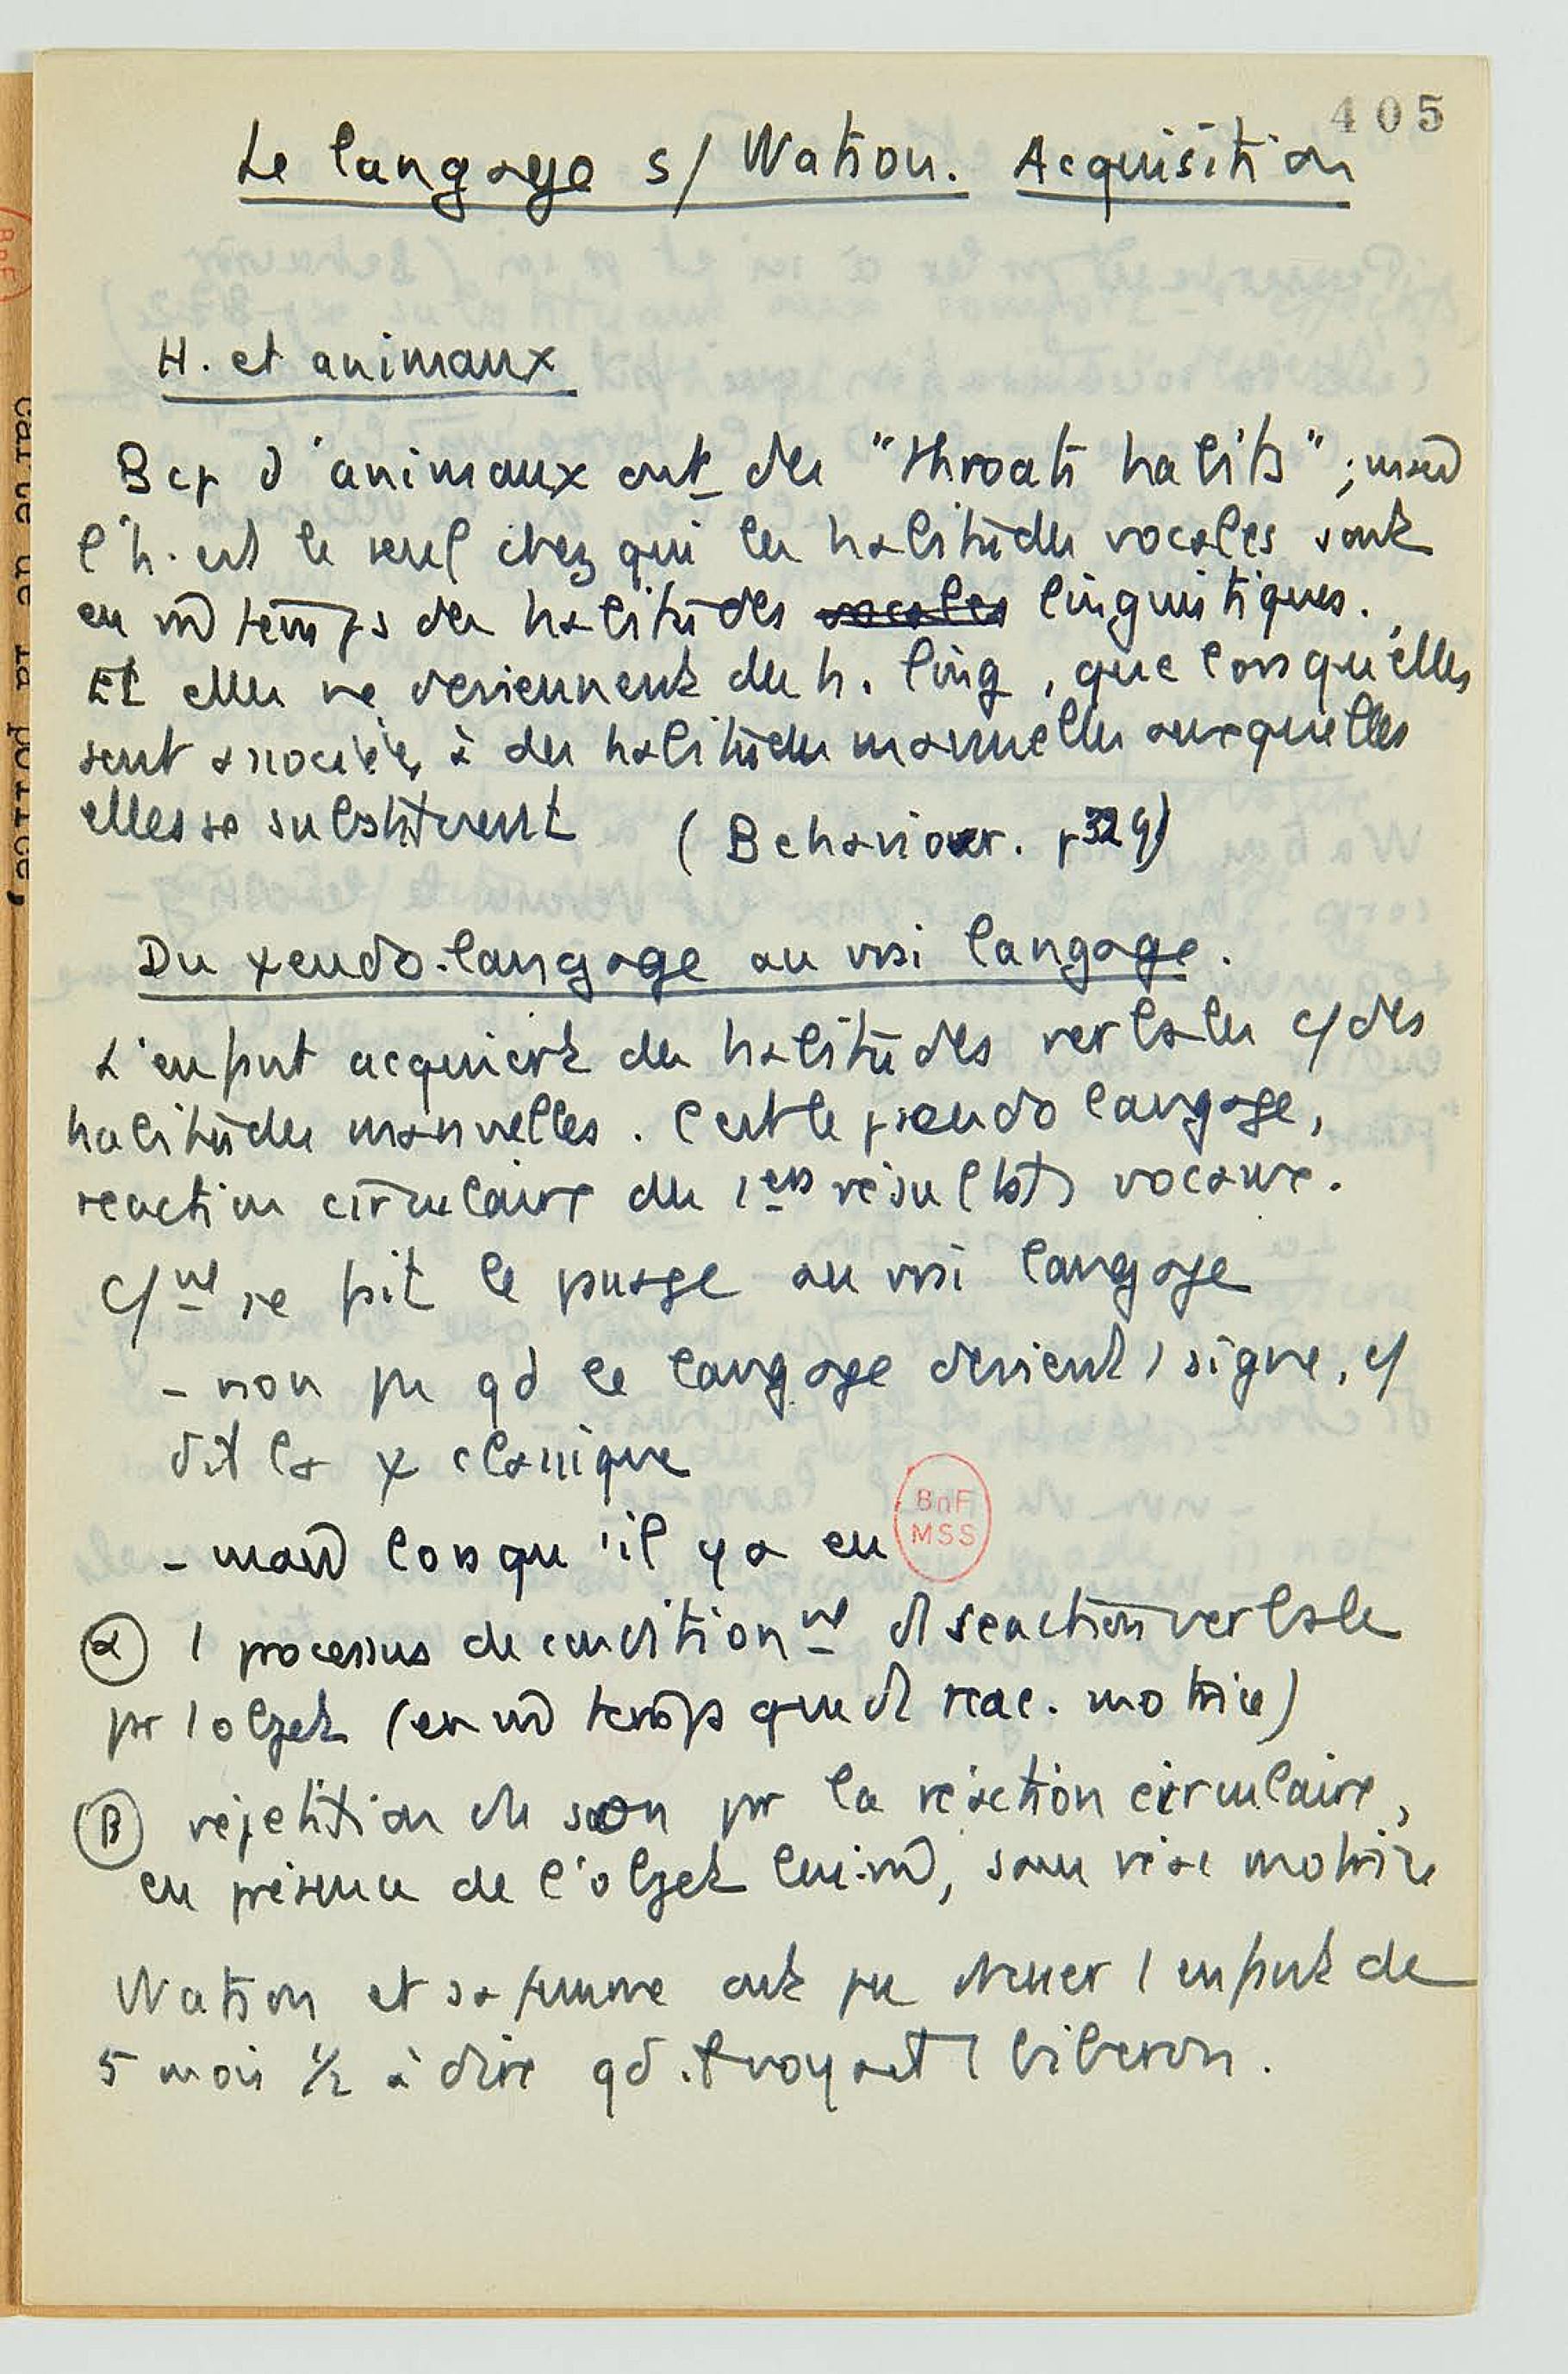 405
Le langage s/ Watson. Acquisition
H. et animaux
Bcp d'animaux ont des "throats habits" ; mais
l'h. est le seul chez qui les habitudes vocales sont
en m̂ temps des habitudes vocales linguistiques.
Et elles ne deviennent des h. ling, que lorsqu'elles
sont associées à des habitudes manuelles auxquelles
elles se substituent (Behaviour. p 329)
Du ψeudo-langage au vrai langage.
L'enfant acquiert des habitudes verbales c/ des
habitudes manuelles. C'est le pseudo langage,
réaction circulaire des 1ers résultats vocaux.
C/nt se fait le passage au vrai langage
- non pas qd le langage devient 1 signe, c/
dit la ψ classique
- mais lorsqu'il y a eu
BnF
MSS
α 1 processus de conditionnt d réaction verbale
pr 1 objet (en m̂ temps que d réac. motrice)
β répétition du son pr la réaction circulaire,
en présence de l'objet lui-m̂, sans réac motrice
Watson et sa femme ont pu dresser 1 enfant de
5 mois ½ à dire qd il voyait 1 biberon.